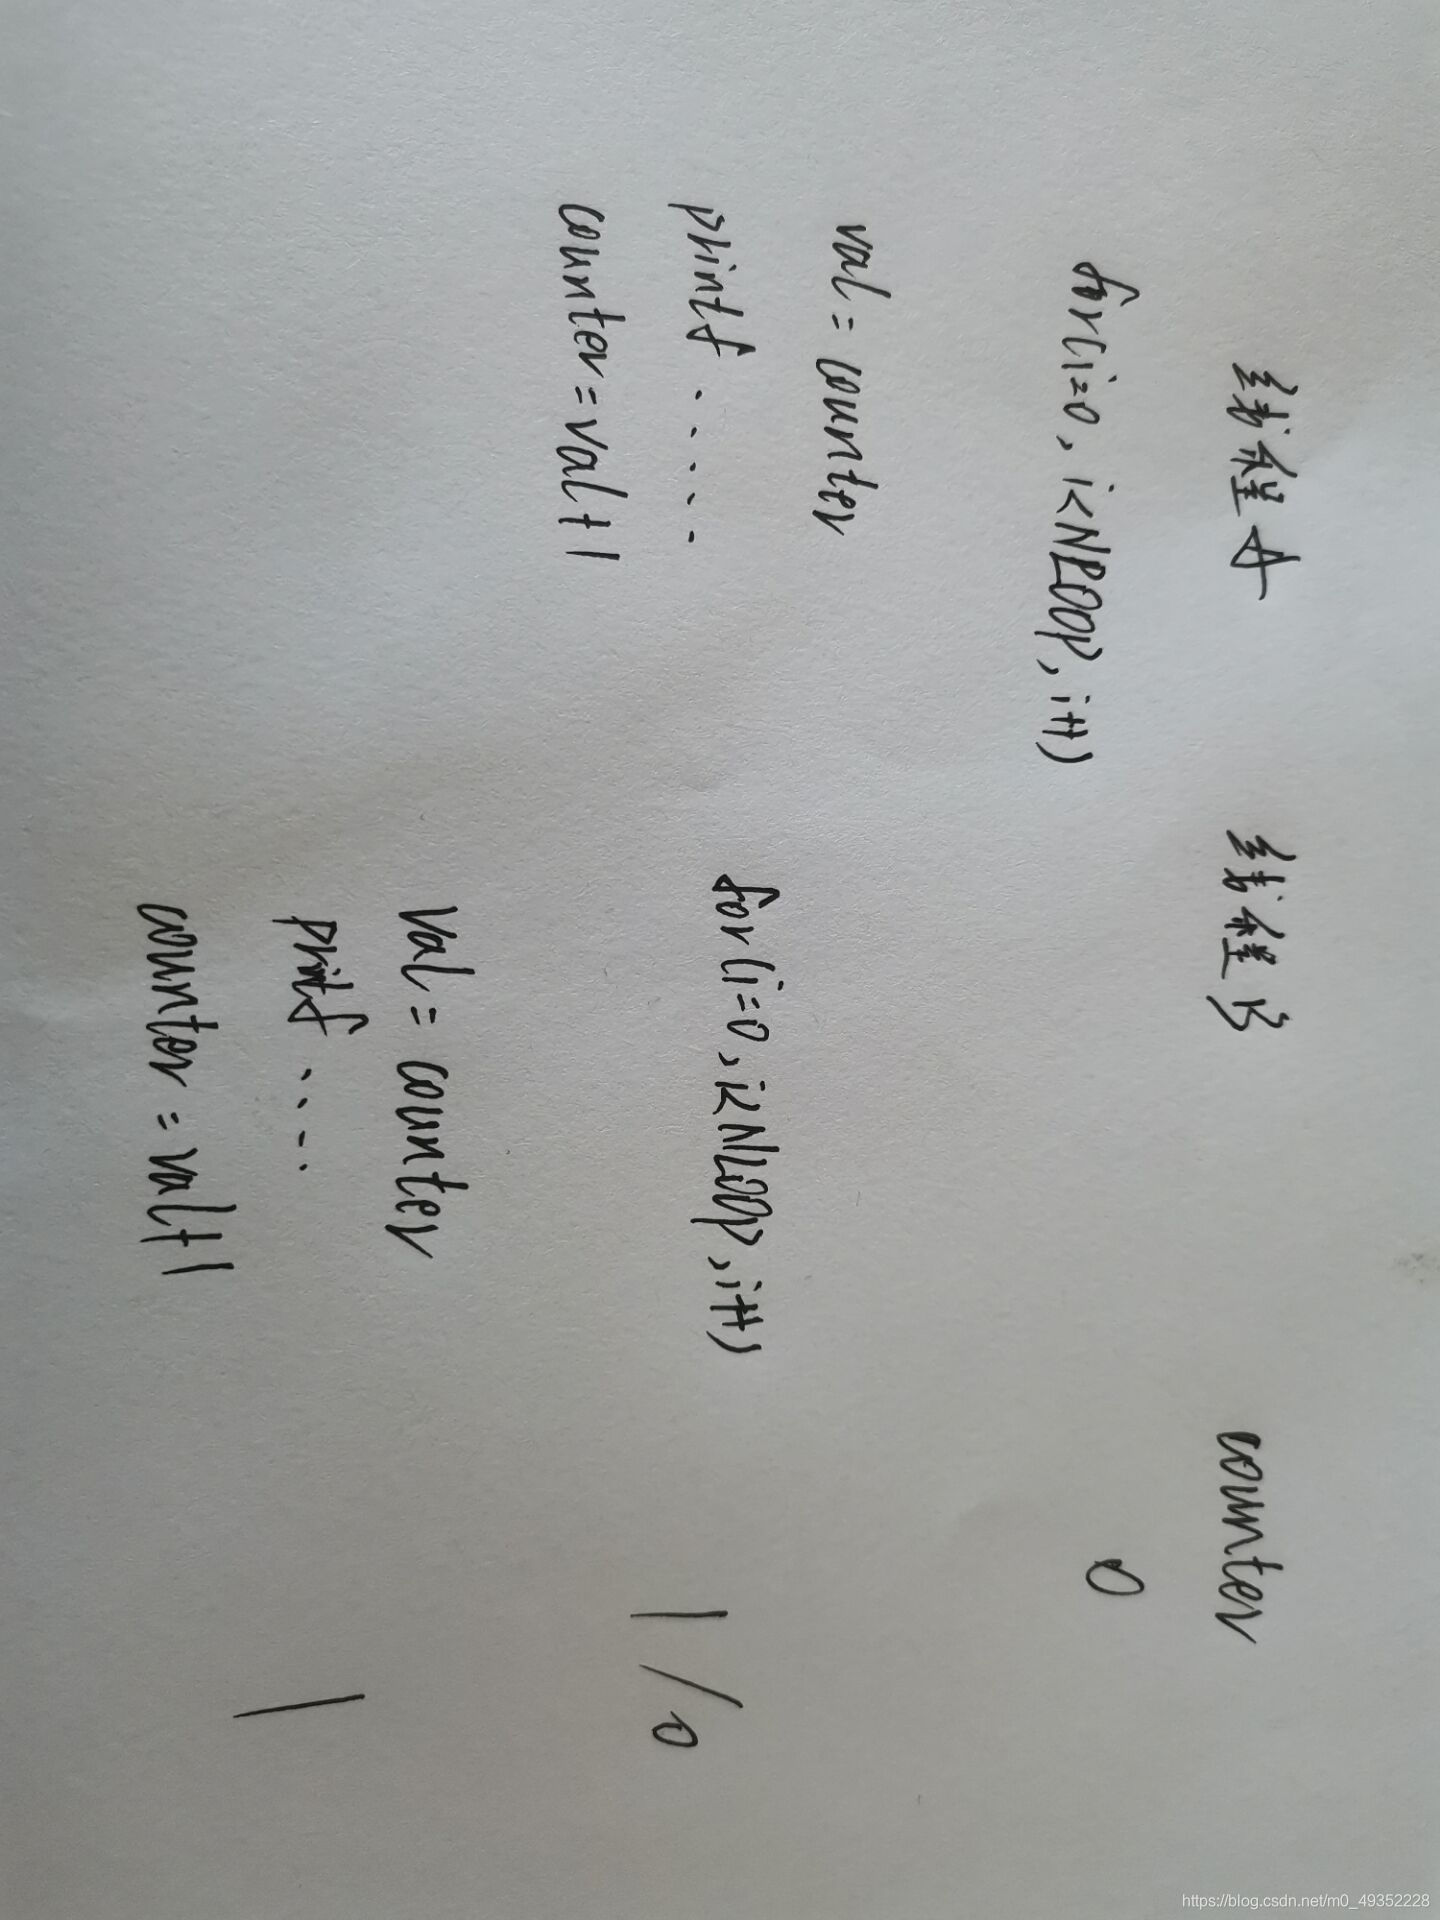 线程A 线程B counter
for(i=0,i<NLOOP,i++) 0
val=counter
printf ·····
for(i=0,i<NLOOP,i++) 1/0
counter=val+1
val=counter
printf ····
1
counter=val+1
https://blog.csdn.net/m0_49352228